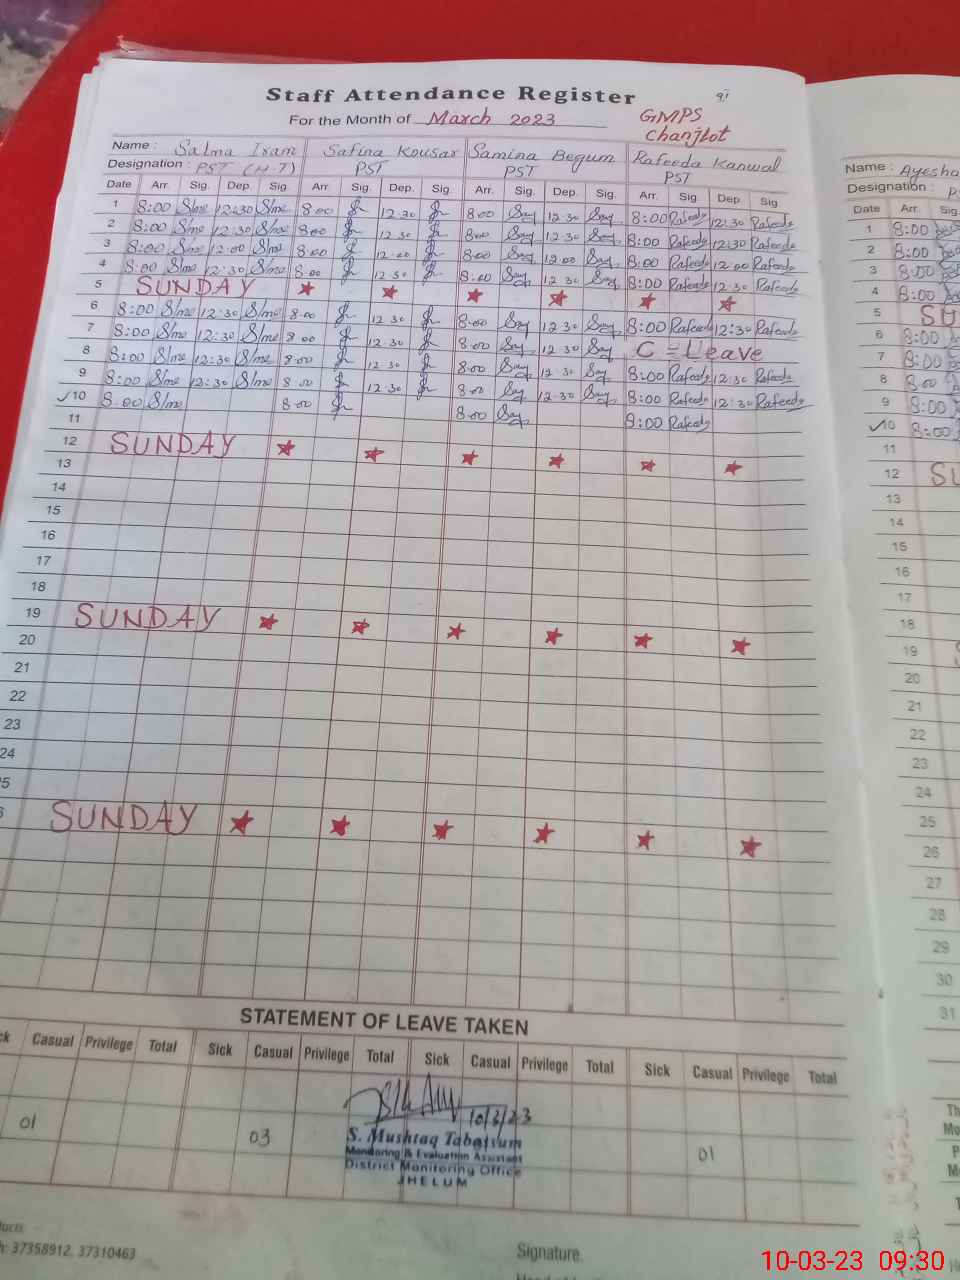 Staff Attendance Register
91
For the Month of March 2023
GMPS
Chanjlot
Name : Salma Iram Safina Kousar Samina Begum Rafeeda Kanwal
Designation : PST (H.T) PST PST PST
Date Arr. Sig. Dep. Sig. Arr. Sig. Dep. Sig. Arr. Sig. Dep. Sig. Arr. Sig Dep. Sig.
1 8:00 S/me 12:30 S/me 8:00 12:30 8:00 12:30 8:00 Rafeeda 12:30 Rafeeda
2 8:00 S/me 12:30 S/me 8:00 12:30 8:00 12:30 8:00 Rafeeda 12:30 Rafeeda
3 8:00 S/me 12:00 S/me 8:00 12:00 8:00 12:00 8:00 Rafeeda 12:00 Rafeeda
4 8:00 S/me 12:30 S/me 8:00 12:30 8:00 12:30 8:00 Rafeeda 12:30 Rafeeda
5 SUNDAY
6 8:00 S/me 12:30 S/me 8:00 12:30 8:00 12:30 8:00 Rafeeda 12:30 Rafeeda
7 8:00 S/me 12:30 S/me 8:00 12:30 8:00 12:30 C = Leave
8 8:00 S/me 12:30 S/me 8:00 12:30 8:00 12:30 8:00 Rafeeda 12:30 Rafeeda
9 8:00 S/me 12:30 S/me 8:00 12:30 8:00 12:30 8:00 Rafeeda 12:30 Rafeeda
✓10 8:00 S/me 8:00 8:00 8:00 Rafeeda
11
12 SUNDAY
13
14
15
16
17
18
19 SUNDAY
20
21
22
23
24
5
6 SUNDAY
STATEMENT OF LEAVE TAKEN
ck Casual Privilege Total Sick Casual Privilege Total Sick Casual Privilege Total Sick Casual Privilege Total
01 03 01
10/3/23
S. Mushtaq Tabassum
Monitoring & Evaluation Assistant
District Monitoring Office
JHELUM
h: 37358912, 37310463
Signature.
Name : Ayesha
Designation :
Date Arr. Sig.
1 8:00
2 8:00
3 8:00
4 8:00
5 SU
6 8:00
7 8:00
8 8:00
9 8:00
✓10 8:00
11
12 SU
13
14
15
16
17
18
19
20
21
22
23
24
25
26
27
28
29
30
31
10-03-23 09:30